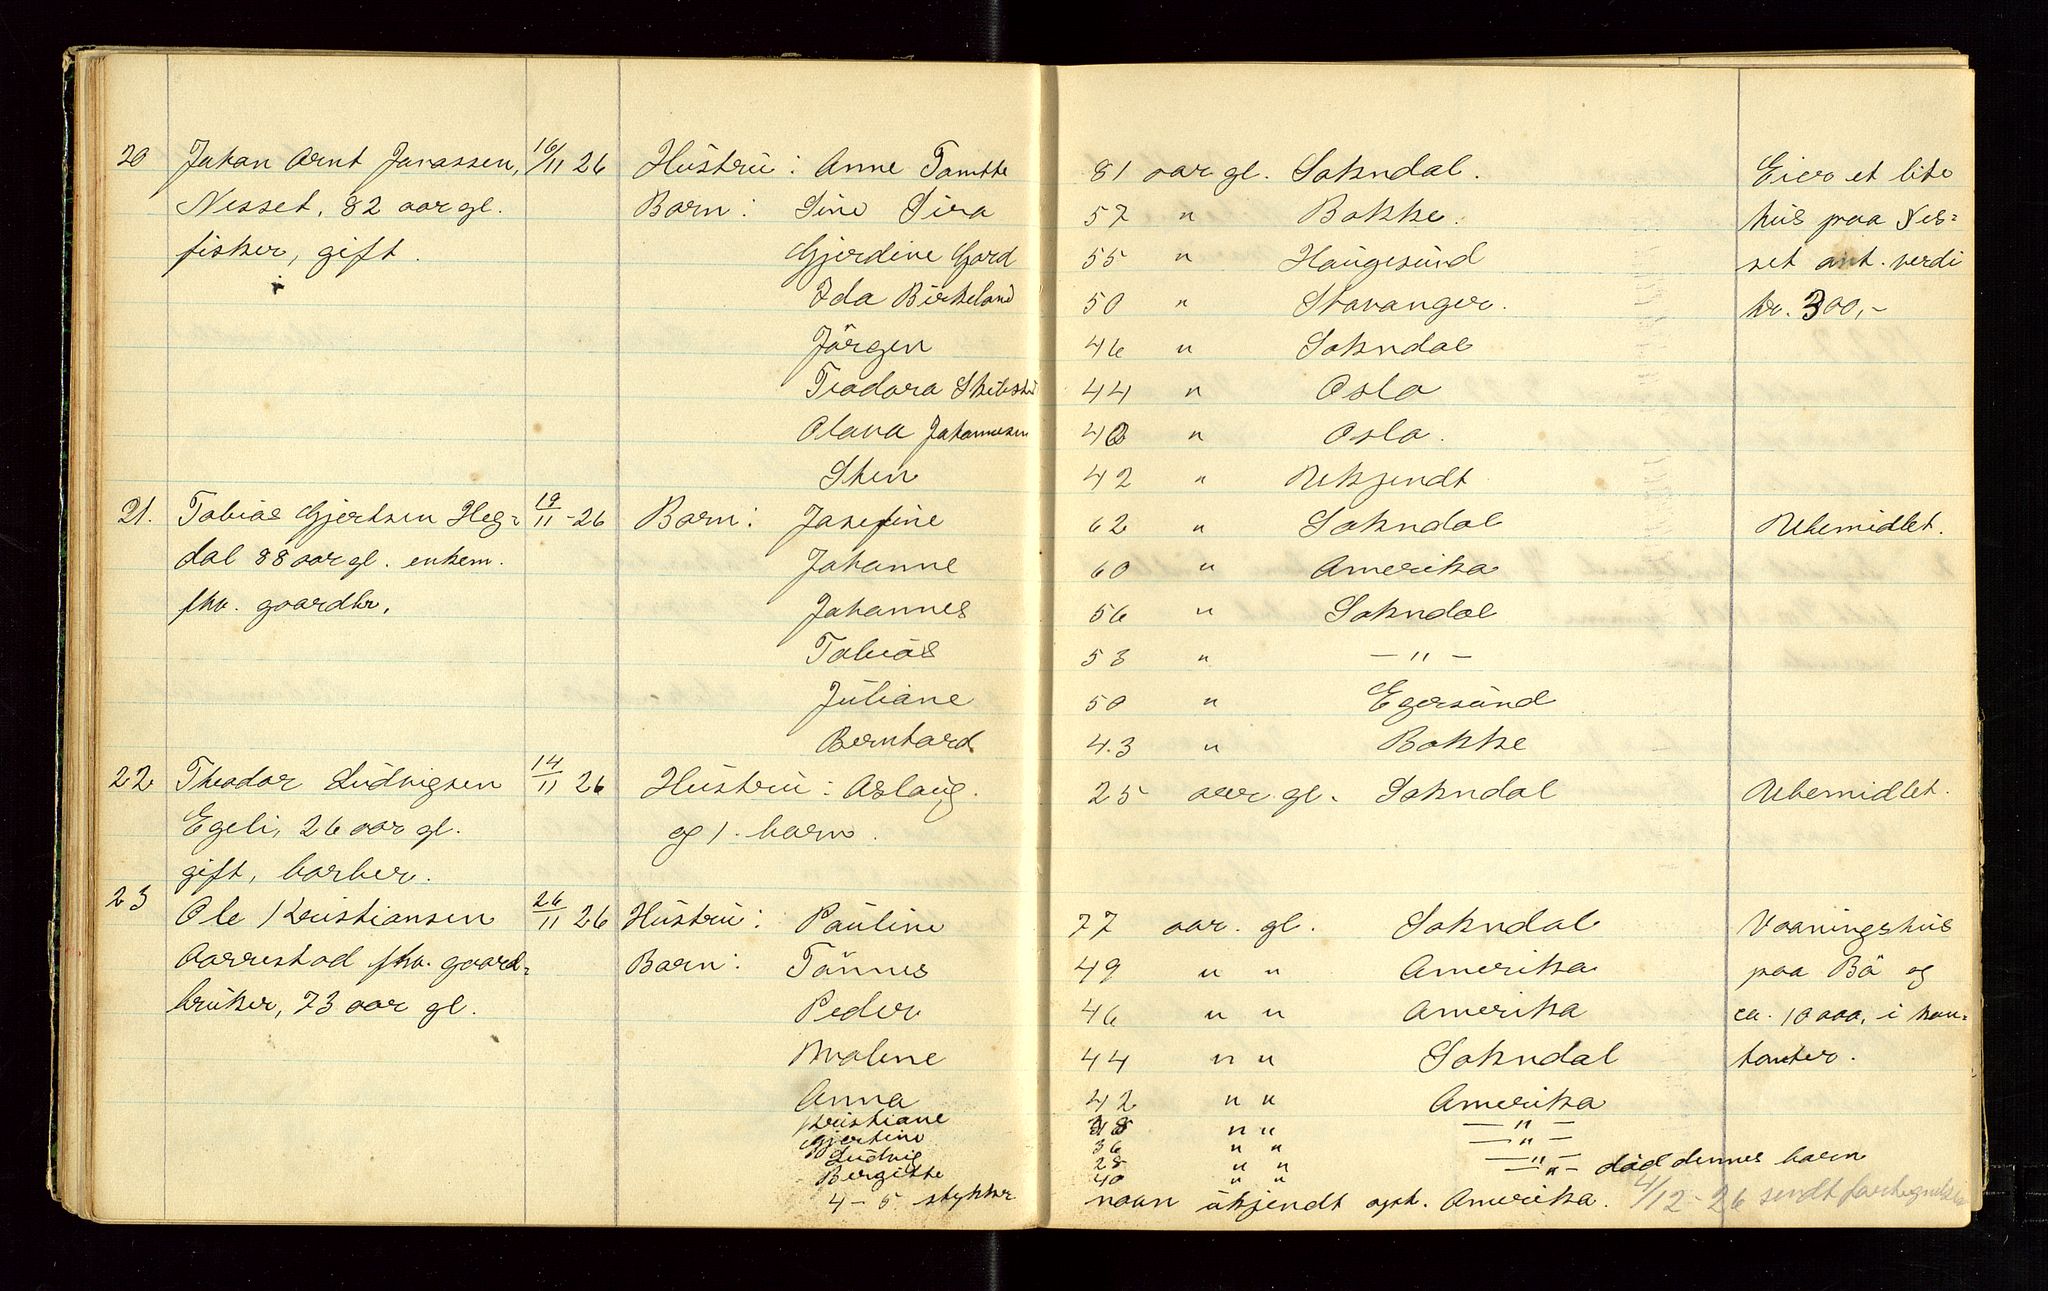 20 Johan Arnt Jonassen, 16/11 26 Hustru: Anne Tomtte 81 aar gl. Sokndal. Eier et lite
Nesset, 82 aar gl. Barn: Sine Sira 57 " Bakke. hus paa Nes=
fisker, gift. Gjerdine Gard 55 " Haugesund set ant. verdi
Ida Birkeland 50 " Stavanger. kr. 300,-
Jörgen 46 " Sokndal
Teodora 44 " Oslo
Olava Johannesen 40 " Oslo.
Sten 42 " Ukjendt
21. Tobias Gjertsen Heg= 19/11-26 Barn: Josefine 62 " Sokndal Ubemidlet.
dal 88 aar gl. enkem. Johanne 60 " Amerika
fhv. gaardbr. Johannes 56 " Sokndal
Tobias 53 " — " —
Juliane 50 " Egersund
Berntard 43 " Bakke
22 Theodor Ludvigsen 14/11 26 Hustru: Aslaug. 25 aar gl. Sokndal Ubemidlet.
Egeli, 26 aar gl. og 1. barn.
gift, barber.
23 Ole Kristiansen 26/11 26 Hustru: Pauline 77 aar. gl. Sokndal Vaaningshus
Aarrestad fhv. gaard= Barn: Tönnes 49 " " Amerika paa Bö og
bruker, 73 aar gl. Peder 46 " " Amerika ca. 10000, i kon=
Malene 44 " " Sokndal tanter.
Anna 42 " " Amerika
Kristiane 38 " " — " —
Gjertine 36 " " — " —
Ludvig 28 " " — " —
Birgitte 40 " " — " — död dennes barn
4-5 stykker navn ukjendt opk. Amerika. 4/12-26 sendt